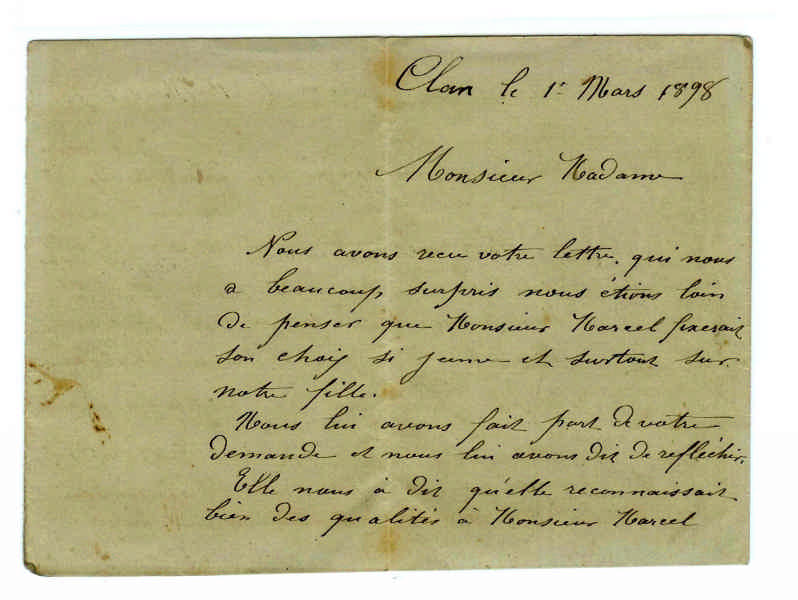 Clan le 1r Mars 1898
Monsieur Madame
Nous avons recu votre lettre, qui nous
a beaucoup surpris nous étions loin
de penser que Monsieur Marcel fixerait
son choix si jeune et surtout sur
notre fille.
Nous lui avons fait part de votre
demande et nous lui avons dit de refléchir.
Elle nous à dit qu'elle reconnaissait
bien des qualités à Monsieur Marcel